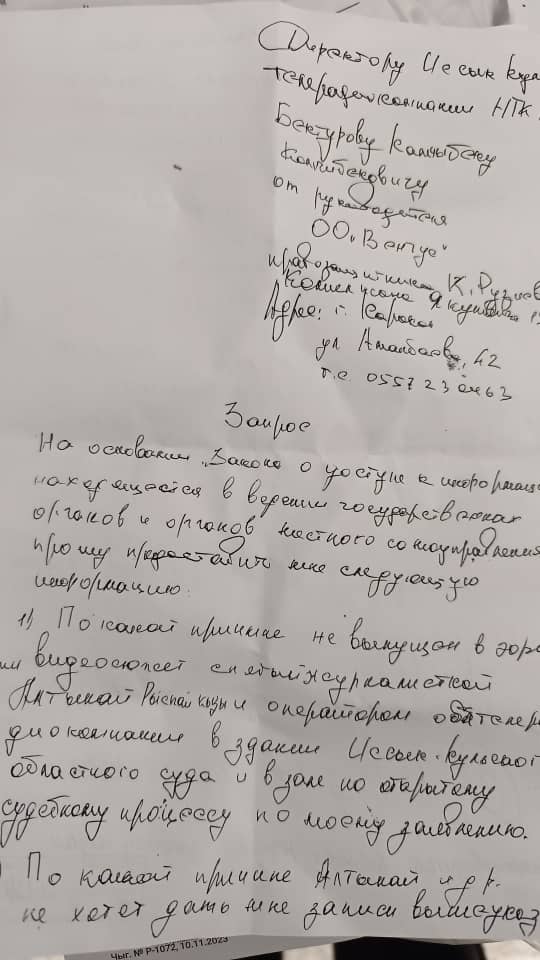 Директору Иссык кул
телерадиокомпании НТК
Бектурову Калыбеку
от руководителя
ОО "Вентус"
правозащитника К. Рузиев
Адрес: г. Каракол
ул 42
т.с. 0557 23 04 63
Запрос
На основании „Закона о доступе к информац
находящейся в ведении государственных
органов и органов местного самоуправления
прошу предоставить мне следующую
информацию:
1) По какой причине не выпущен в эфир
видеосюжет снятый журналисткой
Алтынай Рыспай кызы и оператором телера
диокомпании в здании Иссык-кульског
областного суда и в зале по открытому
судебному процессу по моему заявлению.
По какой причине Алтынай и др.
не хотят дать мне записи вышеуказ
Чыг. № Р-1072, 10.11.2023